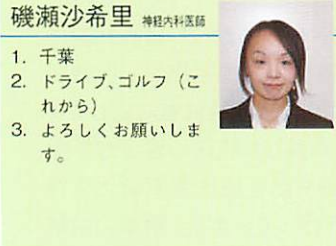 磯瀬沙希里 神経内科医師
1. 千葉
2. ドライブ、ゴルフ（こ
れから）
3. よろしくお願いしま
す。